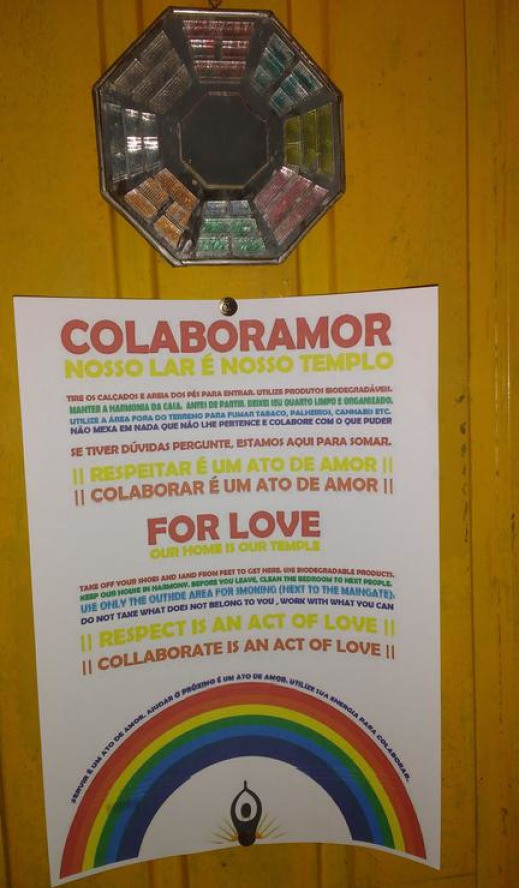 COLABORAMOR
NOSSO LAR É NOSSO TEMPLO
TIRE OS CALÇADOS E AREIA DOS PÉS PARA ENTRAR. UTILIZE PRODUTOS BIODEGRADÁVEIS.
MANTER A HARMONIA DA CASA. ANTES DE PARTIR, DEIXEI SEU QUARTO LIMPO E ORGANIZADO.
UTILIZE A ÁREA FORA DO TERRENO PARA FUMAR TABACO, PALHEIROS, CANNABIS ETC.
NÃO MEXA EM NADA QUE NÃO LHE PERTENCE E COLABORE COM O QUE PUDER
SE TIVER DÚVIDAS PERGUNTE, ESTAMOS AQUI PARA SOMAR.
|| RESPEITAR É UM ATO DE AMOR ||
|| COLABORAR É UM ATO DE AMOR ||
FOR LOVE
OUR HOME IS OUR TEMPLE
TAKE OFF YOUR SHOES AND SAND FROM FEET TO GET HERE. USE BIODEGRADABLE PRODUCTS.
KEEP OUR HOUSE IN HARMONY. BEFORE YOU LEAVE, CLEAN THE BEDROOM TO NEXT PEOPLE.
USE ONLY THE OUTSIDE AREA FOR SMOKING (NEXT TO THE MAINGATE).
DO NOT TAKE WHAT DOES NOT BELONG TO YOU , WORK WITH WHAT YOU CAN
|| RESPECT IS AN ACT OF LOVE ||
|| COLLABORATE IS AN ACT OF LOVE ||
SERVIR É UM ATO DE AMOR. AJUDAR O PRÓXIMO É UM ATO DE AMOR. UTILIZE SUA ENERGIA PARA COLABORAR.